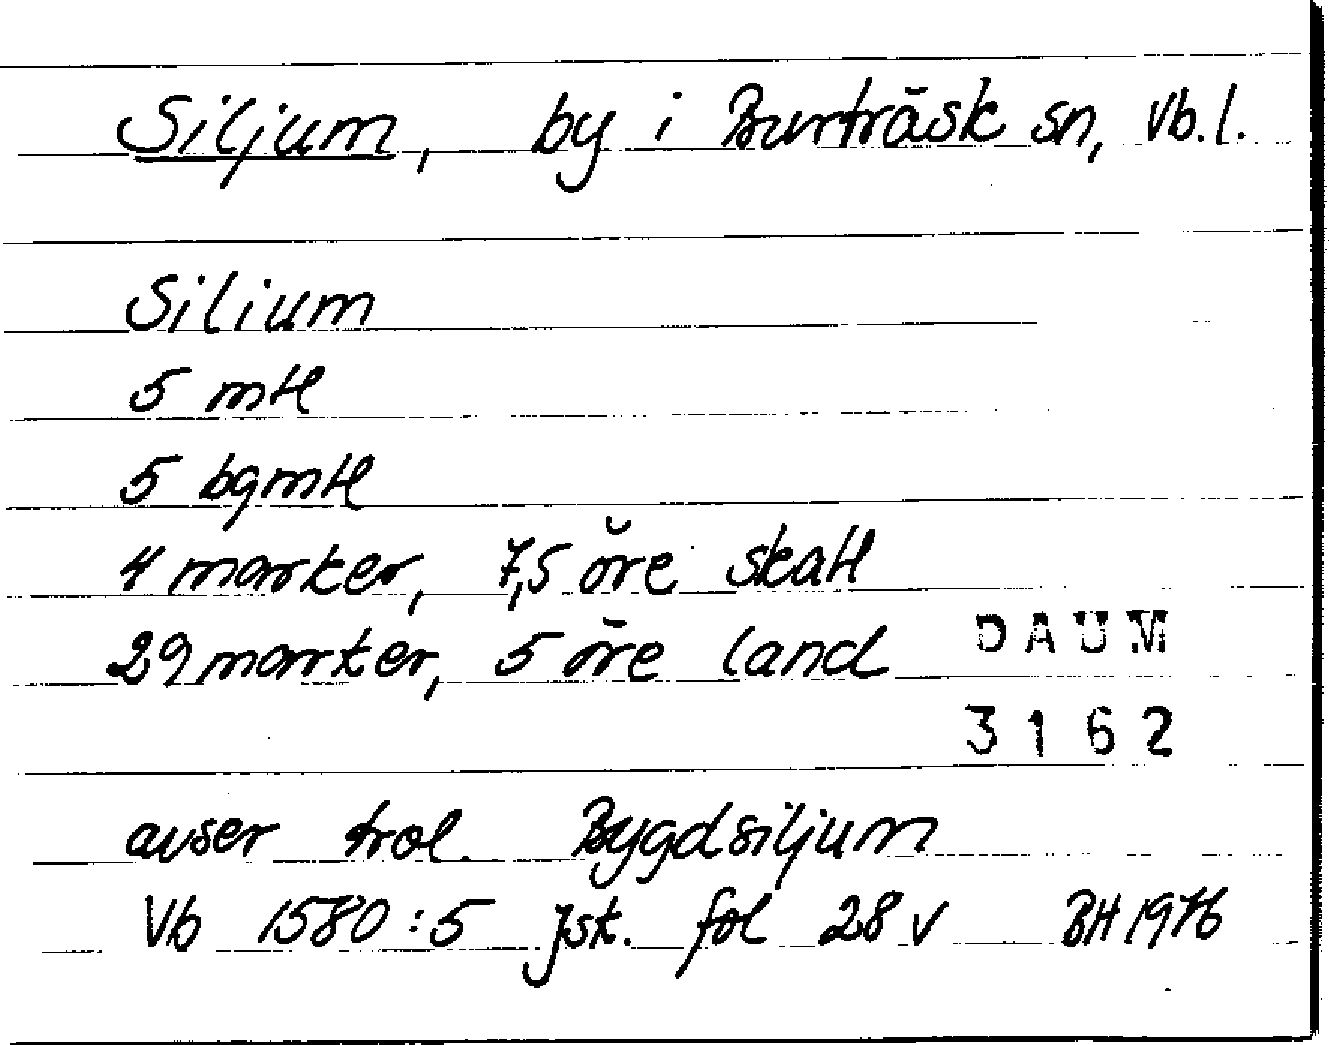 Siljum, by i Burträsk sn, Vb.l.
Silium
5 mtl
5 bgmtl
4 marker, 7,5 öre skatt
29 marker, 5 öre land
DAUM
3162
avser trol. Bygdsiljum
Vb 1580:5 Jsk. fol 28 v BH 1976